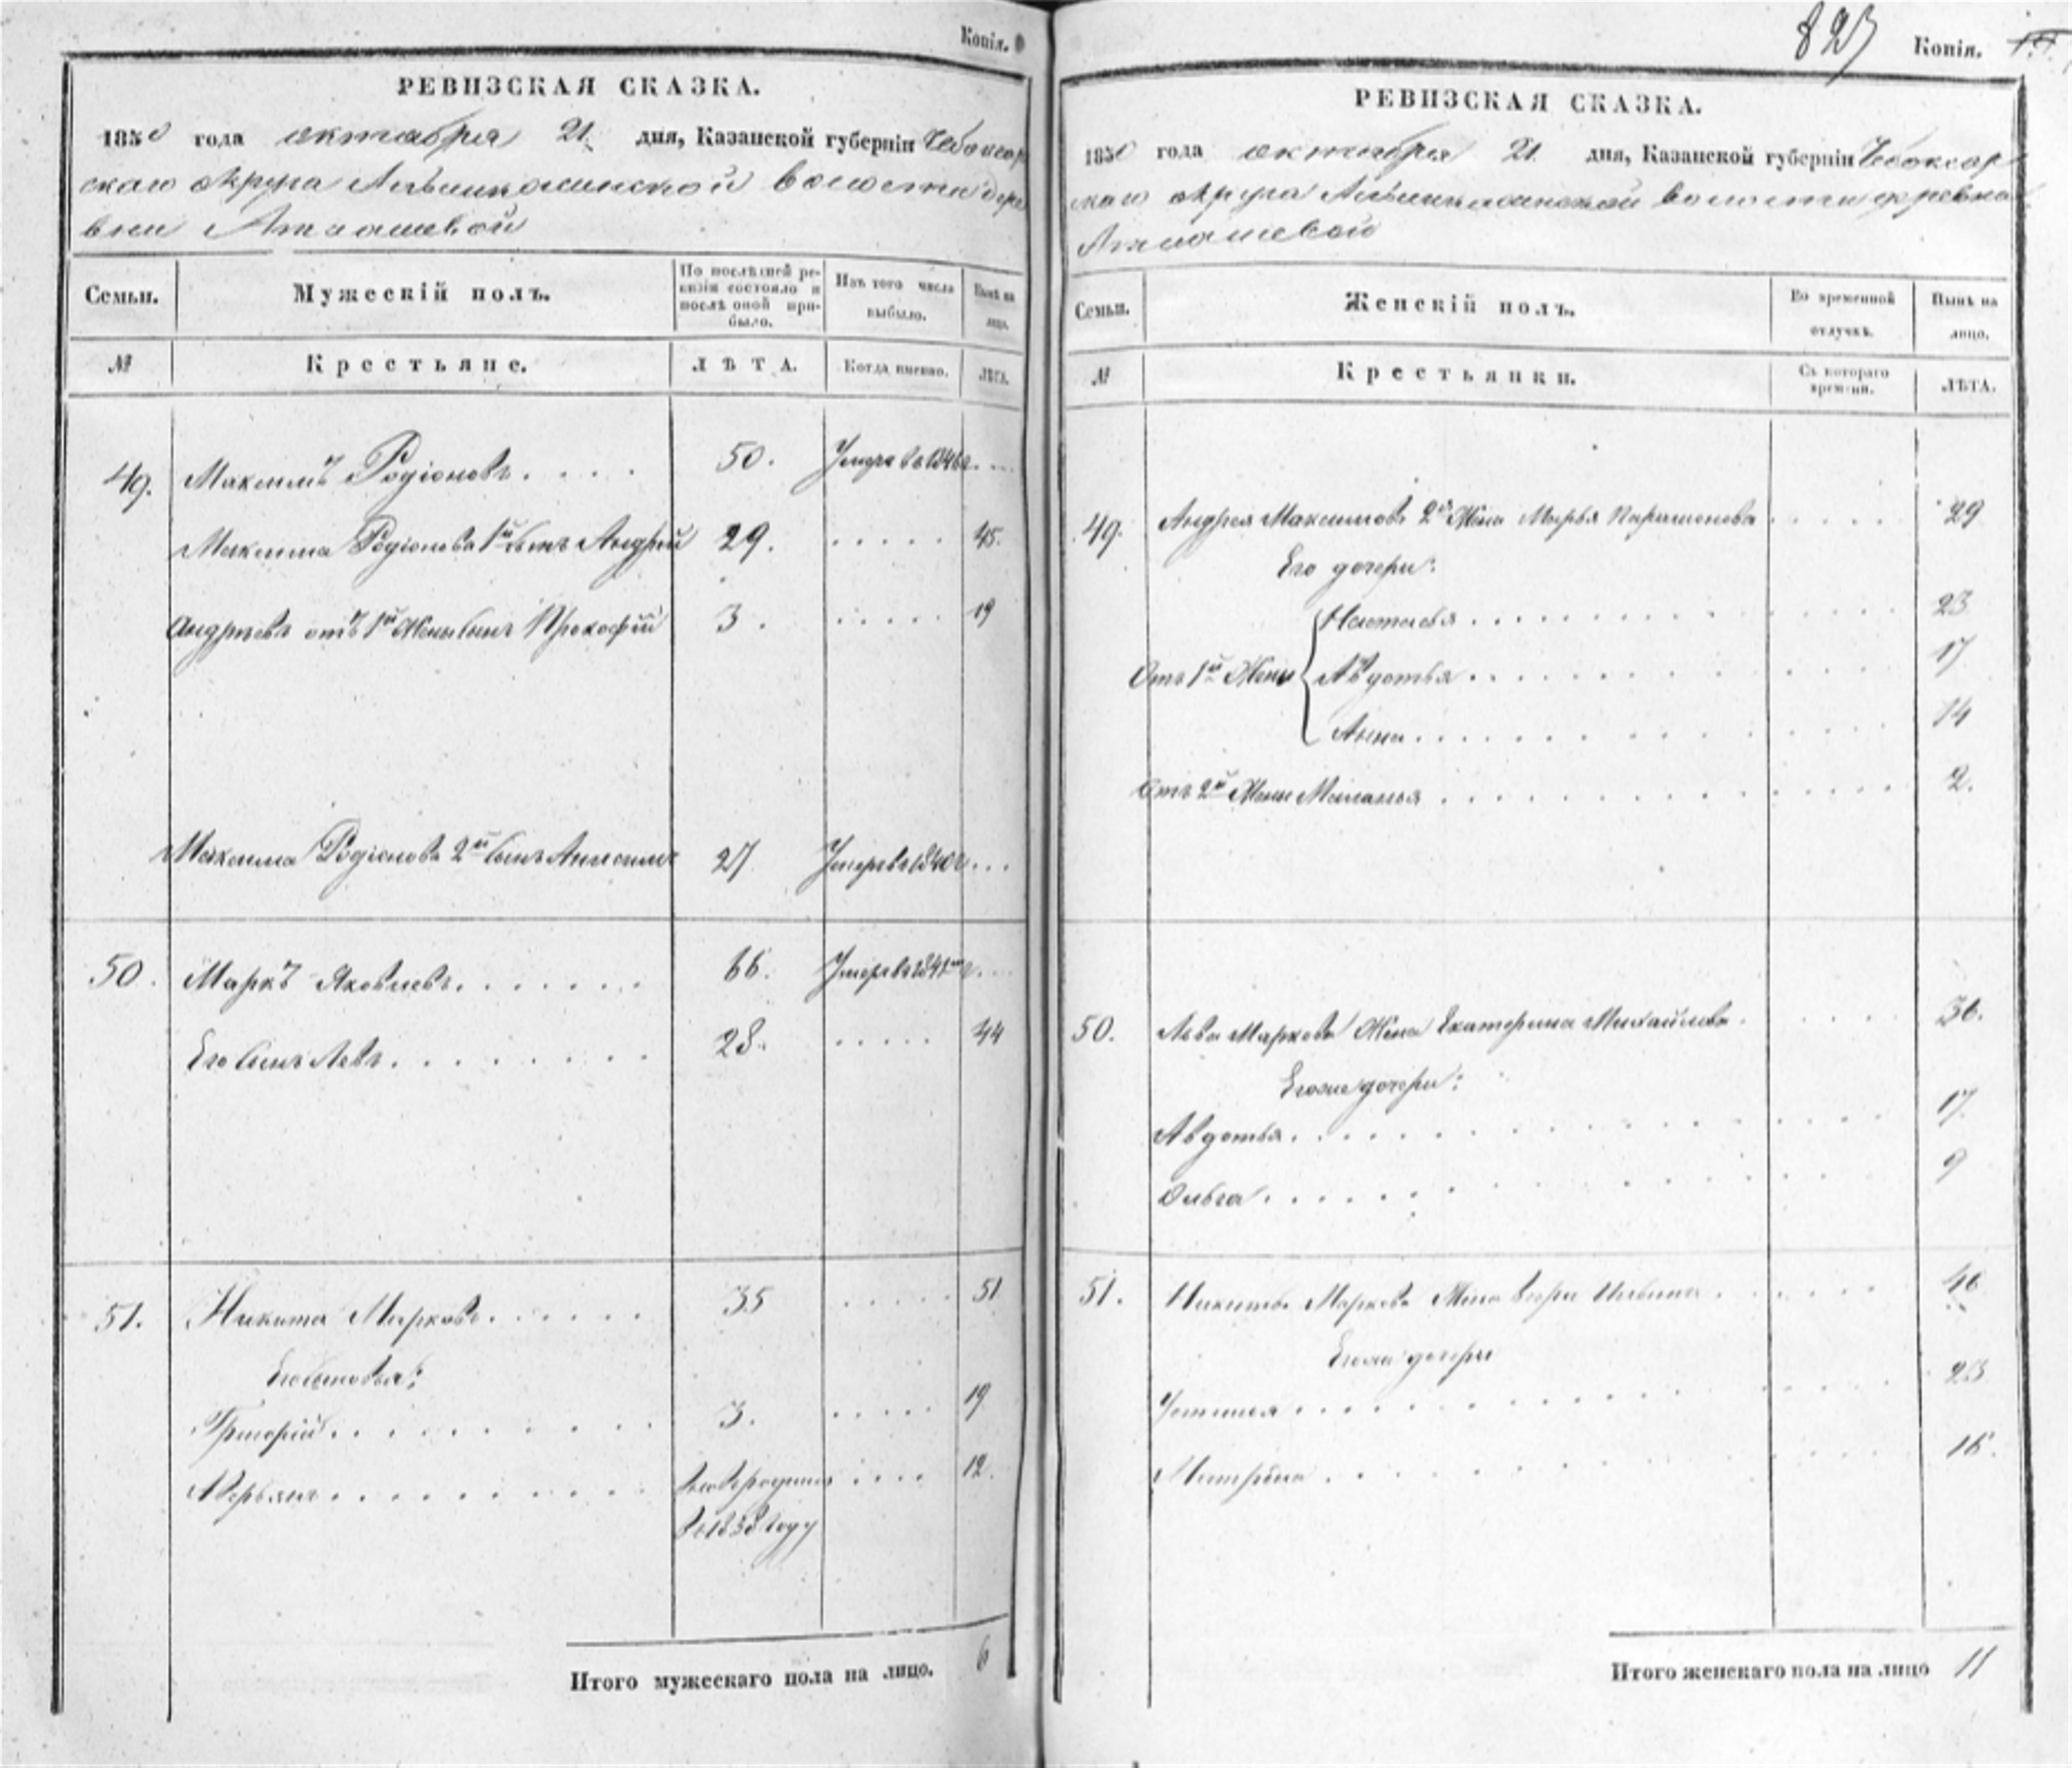 Копія.
РЕВИЗСКАЯ СКАЗКА.
1850 года октября 21 дня, Казанской губерніи Чебоксар
скаго округа волости дере
вни Атлашевой
Семьи.
Мужескій полъ.
По послѣдней ре-
визіи состояло и
послѣ оной при-
было.
Изъ того числа
выбыло.
Нынѣ на
лицо.
№
Крестьяне.
ЛѢТА.
Когда именно.
ЛѢТА.
49. Максимъ Родіоновъ . . . . 50. Умеръ въ 1846 г. . . .
Максима Родіонова 1й сынъ Андрей 29. . . . . . 45.
Андреевъ отъ 1й жены сынъ Прокофій 3. . . . . . 19
Максима Родіонова 2й сынъ 27 Умеръ въ 1840 г. . . .
50. Маркъ Яковлевъ . . . . . . 66. Умеръ въ г. . . .
Его сынъ Левъ . . . . . . . . 28. . . . . . 44
51. Никита Марковъ . . . . . . 35 . . . . . 51
Его сыновья:
Григорій . . . . . . . . . 3. . . . . . 19
Аверьянъ . . . . . . . . . . . . . 12.
въ 1838 году
Итого мужескаго пола на лицо. 6
823 Копія.
РЕВИЗСКАЯ СКАЗКА.
1850 года октября 21 дня, Казанской губерніи Чебоксар
скаго округа волости деревни
Атлашевой
Семьи.
Женскій полъ.
Во временной
отлучкѣ.
Нынѣ на
лицо.
№
Крестьянки.
Съ котораго
времени.
ЛѢТА.
49. Андрея Максимова 2я жена Марья Парамонова . . . . . 29
Его дочери:
Настасья . . . . . . . . . 23
Отъ 1й жены Авдотья . . . . . . . . . 17
Анна . . . . . . . . . 14
Отъ 2й жены Маланья . . . . . . . . . 2.
50. Льва Маркова жена Екатерина Михайлова . . . . . 36.
Его же дочери:
Авдотья . . . . . . . . . 17
Ольга . . . . . . . . . 9
51. Никиты Маркова жена . . . . . . 46
Его же дочери
Устинья . . . . . . . . . 23
Матрёна . . . . . . . . . 16.
Итого женскаго пола на лицо 11